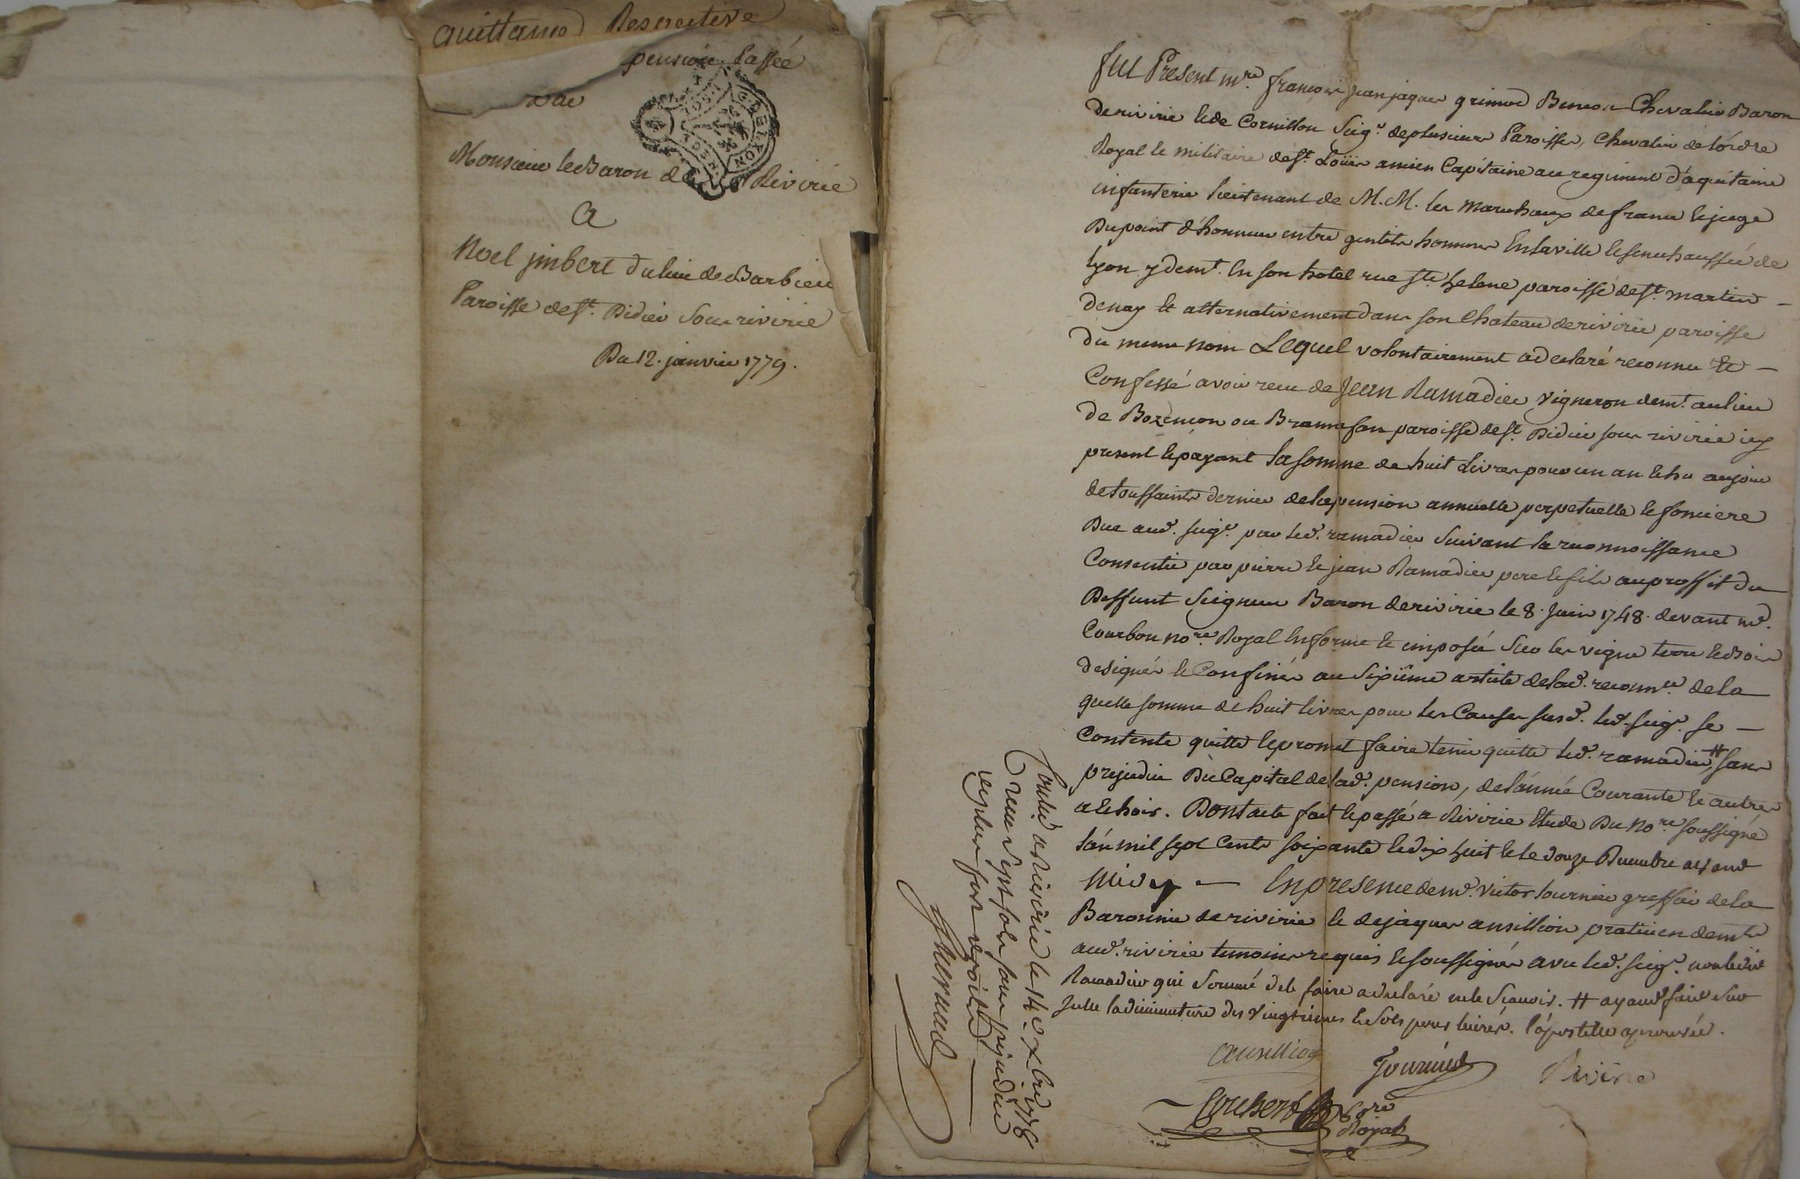 quittance Respective
pension Passée
par
Monsieur le Baron de Rivirie
A
Noel jmbert du lieu de Barbieu
Paroisse de St. Didier sous rivirie
Du 12. janvier 1779.
GEN DE LYON
Fut Present mre. françois jean jaques grimod Beneon Chevalier Baron
de rivirie et de Cornillon Seigr. de plusieurs Paroisses, Chevalier de l'ordre
Royal et militaire de St. Loüis ancien Capitaine au regiment d'aquitaine
infanterie lieutenant de M.M. les marechaux de france et juge
Du point d'honneur entre gentils hommes En la ville et senechaussée de
lyon y demt. En son hotel rue Ste helene paroisse de St. martin
denay et alternativement dans son Chateau de rivirie paroisse
du meme nom Lequel volontairement a declaré reconnu et
Confessé avoir recu de Jean Ramadier vigneron demt. au lieu
de ou paroisse de St. Didier sous rivirie icy
present et payant la somme de huit Livres pour un an echu au jour
de toussaints dernier de la pension annuelle perpetuelle et fonciere
Due aud. seigr. par led. ramadier suivant la reconnoissance
Consentie par pierre et jean Ramadier pere et fils au proffit du
Deffunt Seigneur Baron de rivirie le 8. Juin 1748. devant me.
Courbon nore. Royal En forme et imposée sur les vigne terre et Bois
designés et Confinés au Sixiême article de lad. reconnce. de la
quelle somme de huit livres pour les Causes susd. led. seigr. se
Contente quitte et promet faire tenir quitte led. ramadier # sans
prejudice Du Capital de lad. pension, de l'année Courante et autres
a echoir. Dont acte fait et passé a Rivirie Etude Du nore. soussigné
l'an mil sept Cents soixante et dix huit et le douze Decembre avant
Midy En presence de me. victor fournier greffier de la
Baronnie de rivirie et de jaques ansillion praticien demts.
aud. rivirie temoins requis et soussignés avec led. seigr. non ledit
Ramadier qui Sommé de le faire a declaré ne le Scavoir. # ayant fait sur
Icelle la diminuture des vingtiemes et sols pour livres. l'apostille aprouvée.
ansillion
fournier
Rivirie
nore
Royal
Controllé a Rivirie le 14 Xbre 1778
recu sept sols sans prejudice